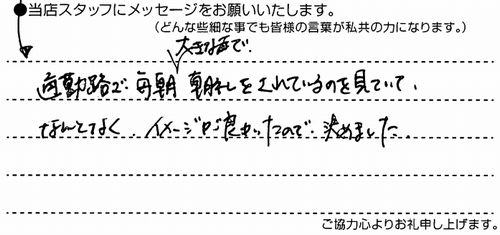 ●当店スタッフにメッセージをお願いいたします。
（どんな些細な事でも皆様の言葉が私共の力になります。）
大きな声で、
通勤路で毎朝 朝礼をされているのを見ていて、
なんとなく、イメージが良かったので、決めました。
ご協力心よりお礼申し上げます。